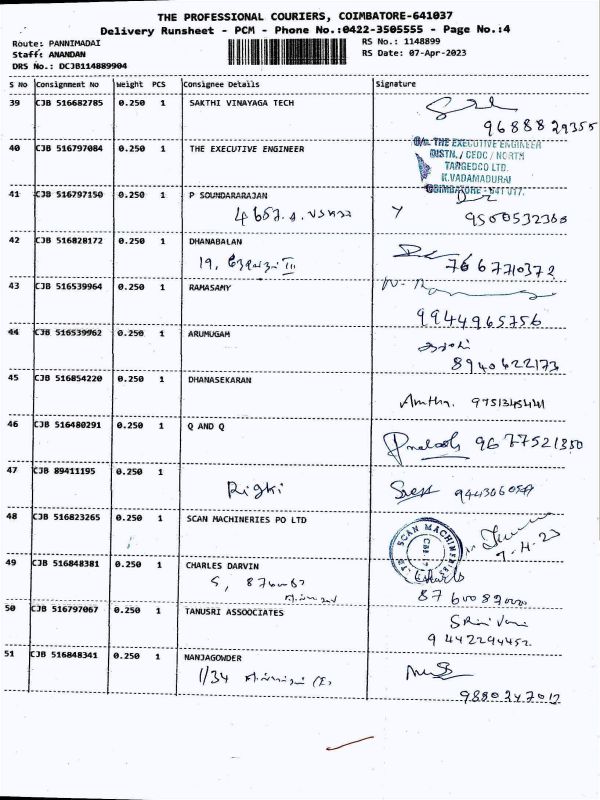 THE PROFESSIONAL COURIERS, COIMBATORE-641037
Delivery Runsheet - PCM - Phone No.:0422-3505555 - Page No.:4
Route: PANNIMADAI
Staff: ANANDAN
DRS No.: DCJB114889904
RS No.: 1148899
RS Date: 07-Apr-2023
S No Consignment No Weight PCS Consignee Details Signature
39 CJB 516682785 0.250 1 SAKTHI VINAYAGA TECH
9688829355
40 CJB 516797084 0.250 1 THE EXECUTIVE ENGINEER
O/o. THE EXECUTIVE ENGINEER
DISTN., / CEDC / NORTH
TANGEDCO LTD.
K.VADAMADURAI
COIMBATORE - 641 017.
41 CJB 516797150 0.250 1 P SOUNDARARAJAN
9500532360
42 CJB 516828172 0.250 1 DHANABALAN
19, III
7667710372
43 CJB 516539964 0.250 1 RAMASAMY
9944965756
44 CJB 516539962 0.250 1 ARUMUGAM
8940622173
45 CJB 516854220 0.250 1 DHANASEKARAN
Amtha.
46 CJB 516480291 0.250 1 Q AND Q
Prakash 9677521350
47 CJB 89411195 0.250 1
Rigki
48 CJB 516823265 0.250 1 SCAN MACHINERIES PO LTD
SCAN MACHINERIES
7-4-23
49 CJB 516848381 0.250 1 CHARLES DARVIN
Charls
50 CJB 516797067 0.250 1 TANUSRI ASSOOCIATES
9442294452
51 CJB 516848341 0.250 1 NANJAGOWDER
1/34 (E)
9880247012